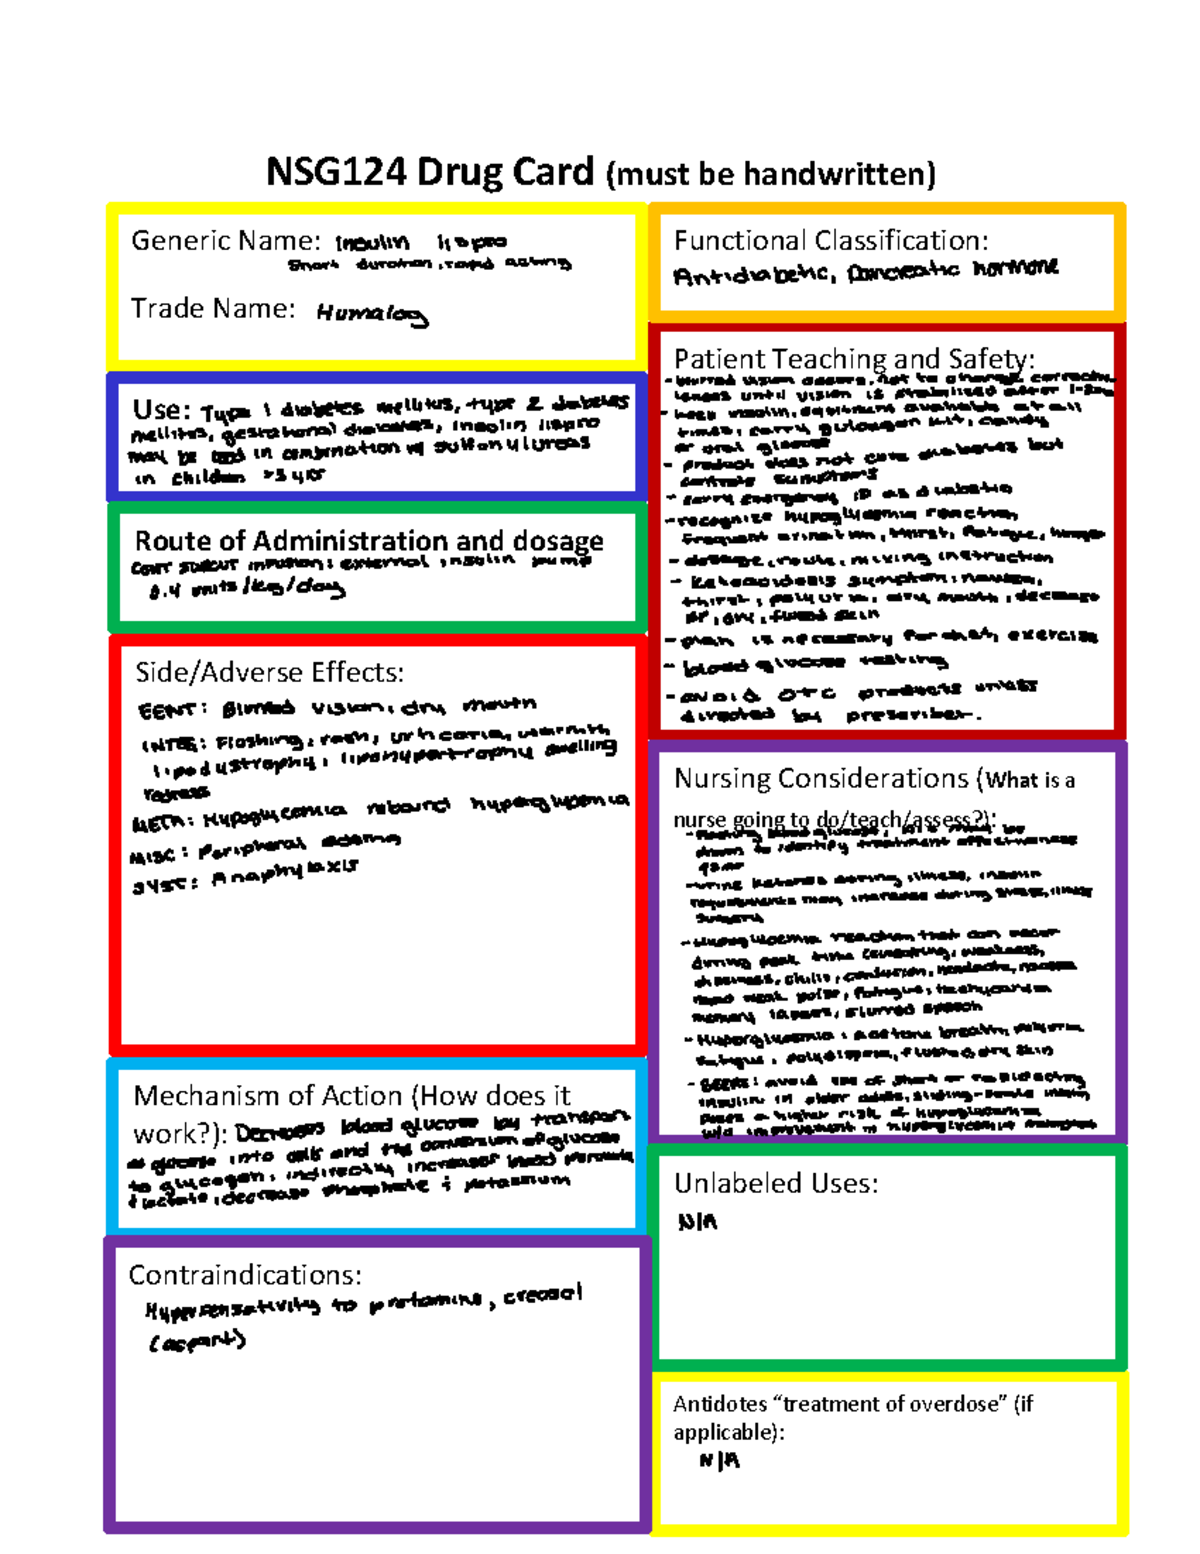 NSG124 Drug Card (must be handwritten)
Generic Name: Insulin lispro
Short duration, rapid acting
Trade Name: Humalog
Use: Type 1 diabetes mellitus, type 2 diabetes
mellitus, gestational diabetes, insulin lispro
may be used in combination w/ sulfonylureas
in children >3 yrs
Route of Administration and dosage
Cont subcut infusion: external insulin pump
units/kg/day
Side/Adverse Effects:
EENT: Blurred vision, dry mouth
INTEG: Flushing, rash, urticaria, warmth,
lipodystrophy, lipohypertrophy swelling
redness
META: Hypoglycemia rebound hyperglycemia
MISC: Peripheral edema
SYST: Anaphylaxis
Mechanism of Action (How does it
work?): Decreases blood glucose by transport
of glucose into cells and the conversion of glucose
to glycogen, indirectly increases blood pyruvate
& lactate, decrease phosphate & potassium
Contraindications:
Hypersensitivity to protamine, creosol
(aspart)
Functional Classification:
Antidiabetic, Pancreatic hormone
Patient Teaching and Safety:
- blurred vision occurs, not to change corrective
lenses until vision is stabilized after 1-2
- keep insulin, equipment available at all
times, carry kit, candy
or oral glucose
- product does not cure diabetes but
controls symptoms
- carry emergency ID as diabetic
- recognize hypoglycemia reaction,
frequent urination, thirst, fatigue, hunger
- dosage, route, mixing instruction
- Ketoacidosis symptoms: nausea,
thirst, polyuria, dry mouth, decrease
BP, dry, flushed skin
- plan is necessary for diet, exercise
- blood glucose testing
- avoid OTC products unless
directed by prescriber.
Nursing Considerations (What is a
nurse going to do/teach/assess?):
- Fasting blood glucose, may be
drawn to identify treatment effectiveness
- urine ketones during illness, insulin
requirements may increase during stress, illness
surgery
- Hypoglycemia reaction that can occur
during peak time (sweating, weakness,
dizziness, chills, confusion, headache, nausea
rapid weak pulse, fatigue, tachycardia
memory lapses, slurred speech
- Hyperglycemia: acetone breath, polyuria
fatigue, polydipsia, flushed, dry skin
- BEERS: avoid use of short or rapid acting
insulin in older adults, sliding-scale insulin
poses a higher risk of hypoglycemia
w/o improvement in hyperglycemia
Unlabeled Uses:
N/A
Antidotes “treatment of overdose” (if
applicable):
N/A